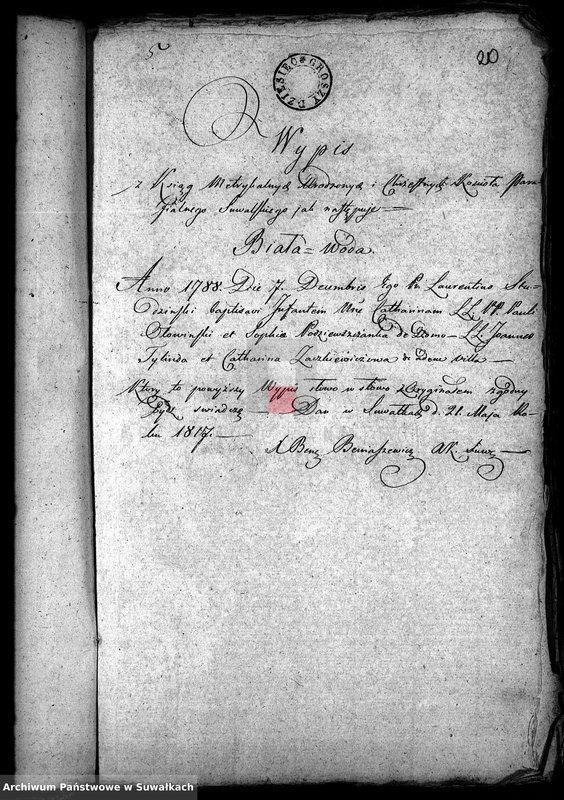 5
20
DZIESIĘĆ GROSZY
Wypis
z Ksiąg Metrykalnych Urodzonych i Chrzestnych Kościoła Para-
fialnego Suwalskiego jak następuje —
Biała = Woda.
Anno 1788. Die 7. Decembris Ego Pr. Laurentius Stu-
dzinski baptisavi Infantem Nne Catharinam LL. PP. Pauli
Słowinski et Sophia de Domo — LL. Joannes
et Catharina de Villa —
Który to powyższy Wypis słowo w słowo z Oryginałem zgodny
bydź świadczę — Dan w Suwałkach d. 21. Maja Ro-
ku 1817. —
X Bene Bernaszewicz
Archiwum Państwowe w Suwałkach